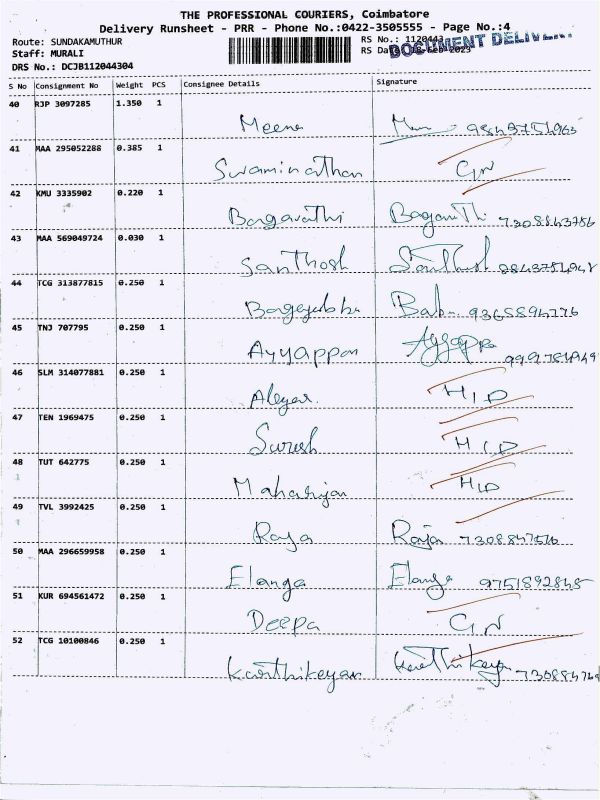 THE PROFESSIONAL COURIERS, Coimbatore
Delivery Runsheet - PRR - Phone No.:0422-3505555 - Page No.:4
Route: SUNDAKAMUTHUR RS No.: 1120443
Staff: MURALI RS 18-Feb-2023
DOCUMENT
DRS No.: DCJB112044304
S No Consignment No Weight PCS Consignee Details Signature
40 RJP 3097285 1.350 1
Meena
41 MAA 295052288 0.385 1
Swaminathan
42 KMU 3335902 0.220 1
Bagavathi 7308843756
43 MAA 569049724 0.030 1
Santhosh Santhosh
44 TCG 313877815 0.250 1
Babu 9365894776
45 TNJ 707795 0.250 1
Ayyappan Ayyappa
46 SLM 314077881 0.250 1
HID
47 TEN 1969475 0.250 1
Suresh HID
48 TUT 642775 0.250 1
Maharajan HID
49 TVL 3992425 0.250 1
Raja Raja
50 MAA 296659958 0.250 1
Elanga Elanga 9751892845
51 KUR 694561472 0.250 1
Deepa
52 TCG 10100846 0.250 1
Karthikeyan Karthikeya